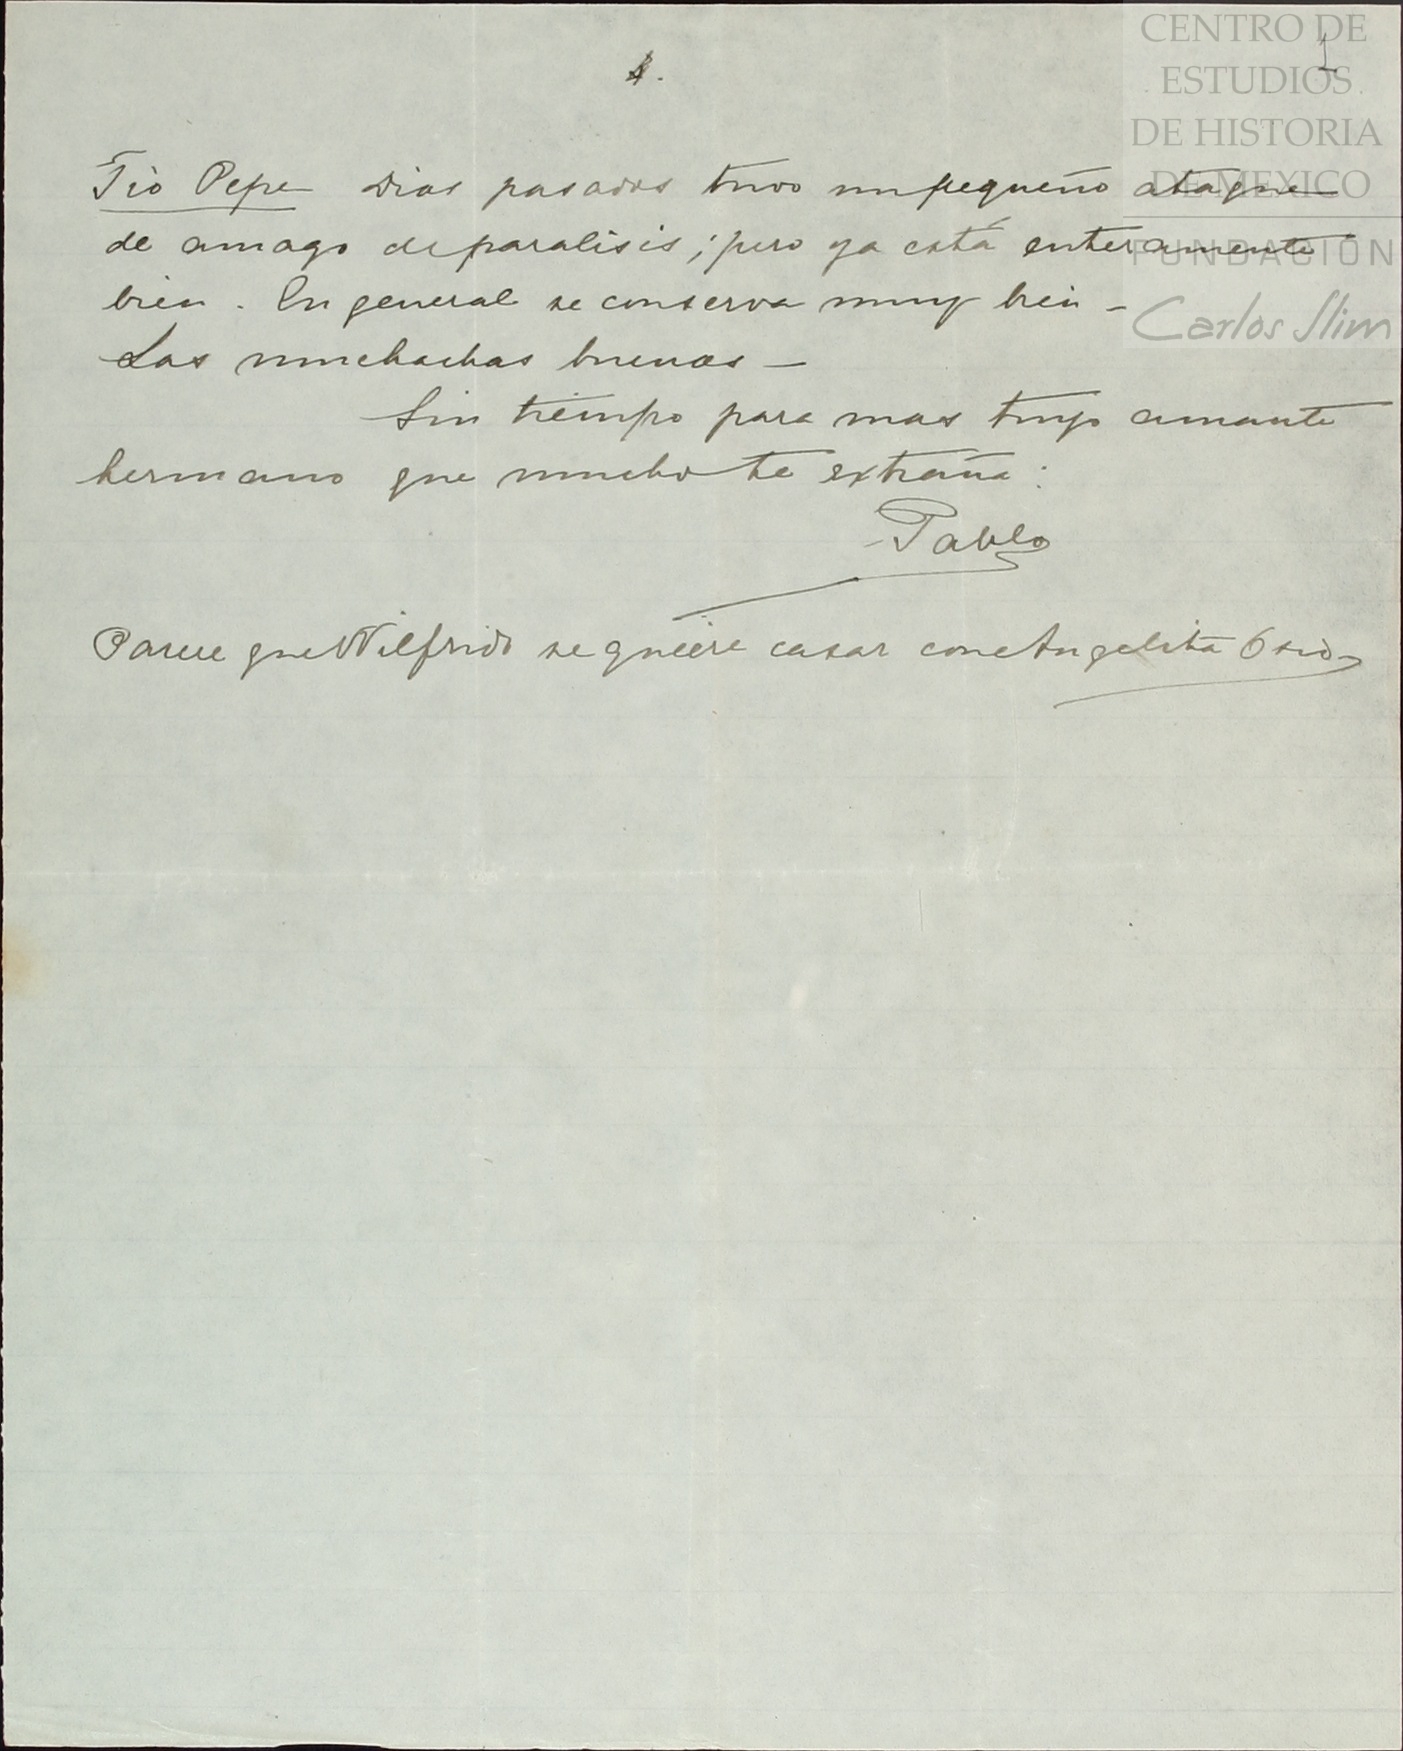 CENTRO DE
ESTUDIOS
DE HISTORIA
DE MEXICO
FUNDACIÓN
Carlos Slim
Tio Pepe dias pasados tuvo un pequeño ataque
de amago de parálisis; pero ya está enteramente
bien. En general se conserva muy bien -
Las muchachas buenas -
Sin tiempo para mas tuyo amante
hermano que mucho te extraña:
Pablo
Parece que Wilfrido se quiere casar con Angelita Osio